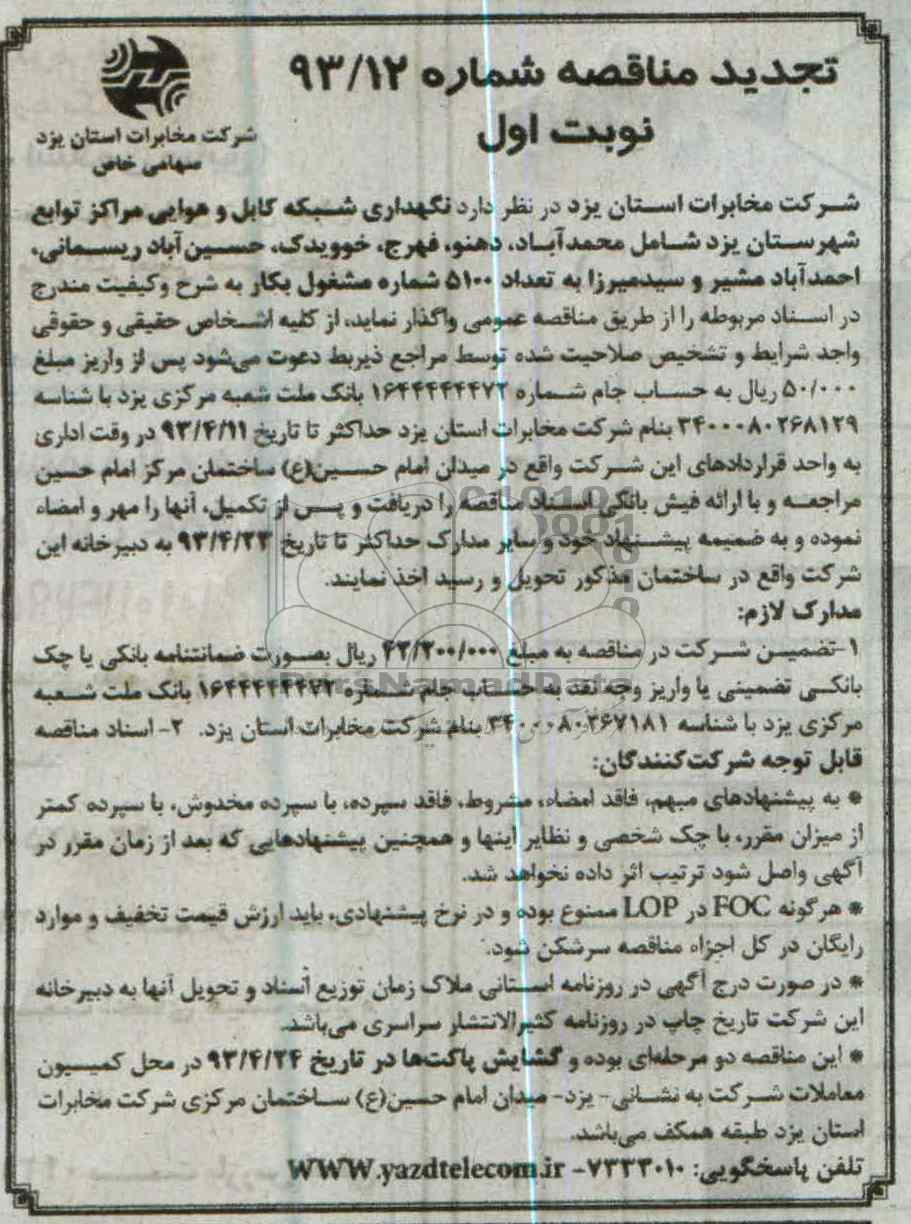 تجدید مناقصه شماره ۹۳/۱۲
نوبت اول
شرکت مخابرات استان یزد
سهامی خاص
شرکت مخابرات استان یزد در نظر دارد نگهداری شبکه کابل و هوایی مراکز توابع
شهرستان یزد شامل محمدآباد، دهنو، فهرج، خوویدک، حسین‌آباد ریسمانی،
احمدآباد مشیر و سیدمیرزا به تعداد ۵۱۰۰ شماره مشغول بکار به شرح وکیفیت مندرج
در اسناد مربوطه را از طریق مناقصه عمومی واگذار نماید، از کلیه اشخاص حقیقی و حقوقی
واجد شرایط و تشخیص صلاحیت شده توسط مراجع ذیربط دعوت می‌شود پس از واریز مبلغ
۵۰/۰۰۰ ریال به حساب جام شماره ۱۶۴۴۴۴۴۴۷۲ بانک ملت شعبه مرکزی یزد با شناسه
۳۴۰۰۰۸۰۲۶۸۱۲۹ بنام شرکت مخابرات استان یزد حداکثر تا تاریخ ۹۳/۴/۱۱ در وقت اداری
به واحد قراردادهای این شرکت واقع در میدان امام حسین(ع) ساختمان مرکز امام حسین
مراجعه و با ارائه فیش بانکی اسناد مناقصه را دریافت و پس از تکمیل، آنها را مهر و امضاء
نموده و به ضمیمه پیشنهاد خود و سایر مدارک حداکثر تا تاریخ ۹۳/۴/۲۳ به دبیرخانه این
شرکت واقع در ساختمان مذکور تحویل و رسید اخذ نمایند.
مدارک لازم:
۱-تضمین شرکت در مناقصه به مبلغ ۴۳/۲۰۰/۰۰۰ ریال بصورت ضمانتنامه بانکی یا چک
بانکی تضمینی یا واریز وجه نقد به حساب جام شماره ۱۶۴۴۴۴۴۴۷۲ بانک ملت شعبه
مرکزی یزد با شناسه ۳۴۰۰۰۸۰۲۶۷۱۸۱ بنام شرکت مخابرات استان یزد. ۲- اسناد مناقصه
قابل توجه شرکت‌کنندگان:
* به پیشنهادهای مبهم، فاقد امضاء، مشروط، فاقد سپرده، با سپرده مخدوش، با سپرده کمتر
از میزان مقرر، با چک شخصی و نظایر اینها و همچنین پیشنهادهایی که بعد از زمان مقرر در
آگهی واصل شود ترتیب اثر داده نخواهد شد.
* هرگونه FOC در LOP ممنوع بوده و در نرخ پیشنهادی، باید ارزش قیمت تخفیف و موارد
رایگان در کل اجزاء مناقصه سرشکن شود.
* در صورت درج آگهی در روزنامه استانی ملاک زمان توزیع اسناد و تحویل آنها به دبیرخانه
این شرکت تاریخ چاپ در روزنامه کثیرالانتشار سراسری می‌باشد.
* این مناقصه دو مرحله‌ای بوده و گشایش پاکت‌ها در تاریخ ۹۳/۴/۲۴ در محل کمیسیون
معاملات شرکت به نشانی- یزد- میدان امام حسین(ع) ساختمان مرکزی شرکت مخابرات
استان یزد طبقه همکف می‌باشد.
تلفن پاسخگویی: ۷۲۳۳۰۱۰- WWW.yazdtelecom.ir
ParsNamadData